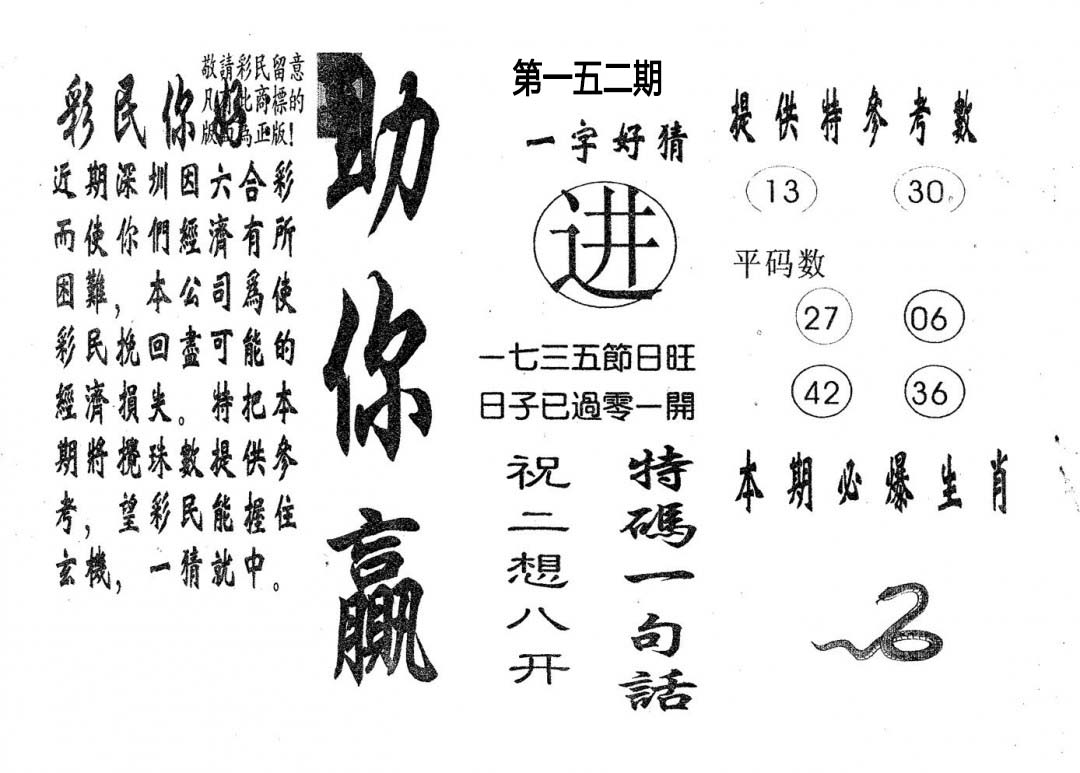 敬請彩民留意
凡有此商標的
版面為正版!
彩民你好
近期深圳因六合彩
而使你們經濟有所
困難，本公司爲使
彩民挽回盡可能的
經濟損失。特把本
期將攪珠數提供參
考，望彩民能握住
玄機，一猜就中。
助你贏
第一五二期
一字好猜
进
一七三五節日旺
日子已過零一開
特碼一句話
祝二想八开
提供特參考數
13 30
平码数
27 06
42 36
本期必爆生肖